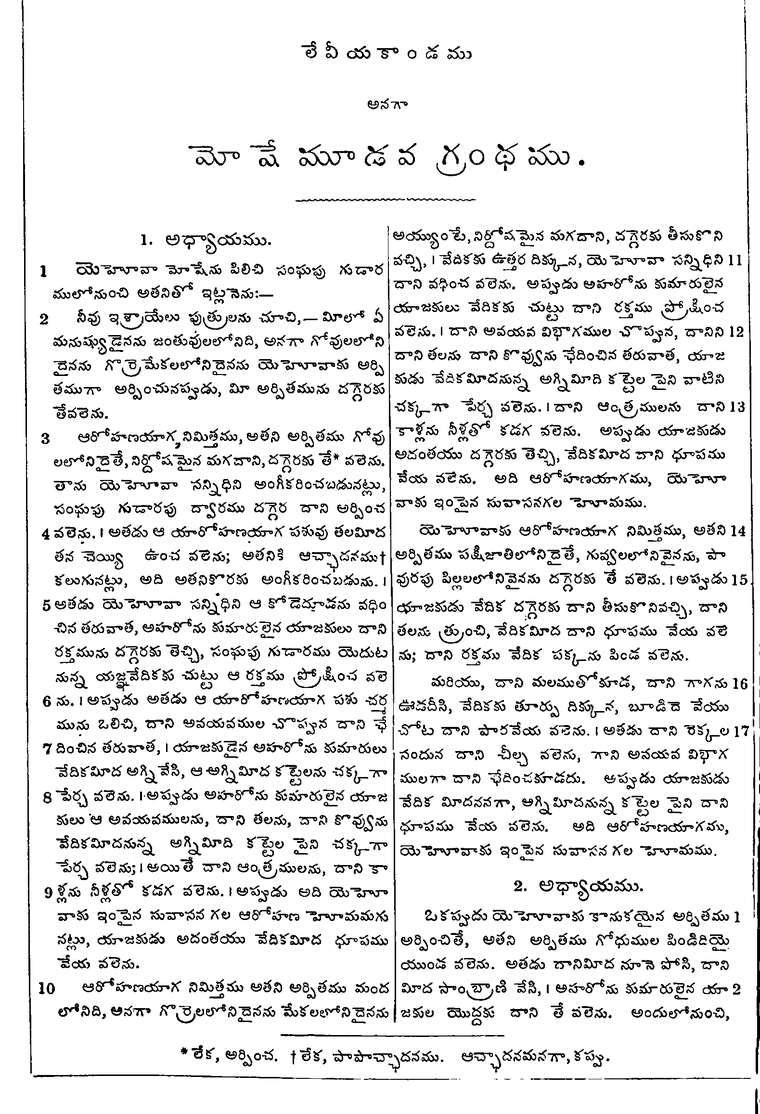 లేవీయకాండము
అనగా
మోషే మూడవ గ్రంథము.
1. అధ్యాయము.
1 యెహెూవా మోషేను పిలిచి సంఘపు గుడార
ములోనుంచి అతనితో ఇట్లనెను:—
2 నీవు ఇశ్రాయేలు పుత్రులను చూచి,— మీలో ఏ
మనుష్యుడైనను జంతువులలోనిది, అనగా గోవులలోని
దైనను గొర్రెమేకలలోనిదైనను యెహెూవాకు అర్పి
తముగా అర్పించునప్పుడు, మీ అర్పితమును దగ్గెరకు
తేవలెను.
3 ఆరోహణయాగ నిమిత్తము, అతని అర్పితము గోవు
లలోనిదైతే, నిర్దోషమైన మగదాని, దగ్గెరకు తే* వలెను.
తాను యెహెూవా సన్నిధిని అంగీకరించబడునట్లు,
సంఘపు గుడారపు ద్వారము దగ్గెర దాని అర్పించ
4 వలెను. । అతడు ఆ యారోహణయాగ పశువు తలమీద
తన చెయ్యి ఉంచ వలెను; అతనికి ఆచ్ఛాదనము†
కలుగునట్లు, అది అతనికొరకు అంగీకరించబడును. ।
5 అతడు యెహెూవా సన్నిధిని ఆ కోడెదూడను వధిం
చిన తరువాత, అహరోను కుమారులైన యాజకులు దాని
రక్తమును దగ్గెరకు తెచ్చి, సంఘపు గుడారము యెదుట
నున్న యజ్ఞవేదికకు చుట్టు ఆ రక్తము ప్రోక్షించ వలె
6 ను. । అప్పుడు అతడు ఆ యారోహణయాగ పశు చర్మ
మును ఒలిచి, దాని అవయవముల చొప్పున దాని ఛే
7 దించిన తరువాత, । యాజకుడైన అహరోను కుమారులు
వేదికమీద అగ్నివేసి, ఆ అగ్నిమీద కట్టెలను చక్కగా
8 పేర్చ వలెను. । అప్పుడు అహరోను కుమారులైన యాజ
కులు ఆ అవయవములను, దాని తలను, దాని కొవ్వును
వేదికమీదనున్న అగ్నిమీది కట్టెల పైని చక్కగా
పేర్చ వలెను; । అయితే దాని ఆంత్రములను, దాని కా
9 ళ్లను నీళ్లతో కడగ వలెను. । అప్పుడు అది యెహెూ
వాకు ఇంపైన సువాసన గల ఆరోహణ హెూమమగు
నట్లు, యాజకుడు అదంతయు వేదికమీద ధూపము
వేయ వలెను.
10 ఆరోహణయాగ నిమిత్తము అతని అర్పితము మంద
లోనిది, అనగా గొర్రెలలోనిదైనను మేకలలోనిదైనను
అయ్యుంటే, నిర్దోషమైన మగదాని, దగ్గెరకు తీసుకొని
వచ్చి, । వేదికకు ఉత్తర దిక్కున, యెహెూవా సన్నిధిని 11
దాని వధించ వలెను. అప్పుడు అహరోను కుమారులైన
యాజకులు వేదికకు చుట్టు దాని రక్తము ప్రోక్షించ
వలెను. । దాని అవయవ విభాగముల చొప్పున, దానిని 12
దాని తలను దాని కొవ్వును ఛేదించిన తరువాత, యాజ
కుడు వేదికమీదనున్న అగ్నిమీది కట్టెల పైని వాటిని
చక్కగా పేర్చ వలెను. । దాని ఆంత్రములను దాని 13
కాళ్లను నీళ్లతో కడగ వలెను. అప్పుడు యాజకుడు
అదంతయు దగ్గెరకు తెచ్చి, వేదికమీద దాని ధూపము
వేయ వలెను. అది ఆరోహణయాగము, యెహెూ
వాకు ఇంపైన సువాసనగల హెూమము.
యెహెూవాకు ఆరోహణయాగ నిమిత్తము, అతని 14
అర్పితము పక్షిజాతిలోనిదైతే, గువ్వలలోనివైనను, పా
వురపు పిల్లలలోనివైనను దగ్గెరకు తే వలెను. । అప్పుడు 15
యాజకుడు వేదిక దగ్గెరకు దాని తీసుకొనివచ్చి, దాని
తలను త్రుంచి, వేదికమీద దాని ధూపము వేయ వలె
ను; దాని రక్తము వేదిక పక్కను పిండ వలెను.
మరియు, దాని మలముతోకూడ, దాని గాగను 16
ఊడదీసి, వేదికకు తూర్పు దిక్కున, బూడిదె వేయు
చోట దాని పారవేయ వలెను. । అతడు దాని రెక్కల 17
సందున దాని చీల్చ వలెను, గాని అవయవ విభాగ
ములగా దాని ఛేదించకూడదు. అప్పుడు యాజకుడు
వేదిక మీదననగా, అగ్నిమీదనున్న కట్టెల పైని దాని
ధూపము వేయ వలెను. అది ఆరోహణయాగము,
యెహెూవాకు ఇంపైన సువాసన గల హెూమము.
2. అధ్యాయము.
ఒకప్పుడు యెహెూవాకు కానుకయైన అర్పితము 1
అర్పించితే, అతని అర్పితము గోధుముల పిండిదియై
యుండ వలెను. అతడు దానిమీద నూనె పోసి, దాని
మీద సాంబ్రాణి వేసి, । అహరోను కుమారులైన యా 2
జకుల యొద్దకు దాని తే వలెను. అందులోనుంచి,
* లేక, అర్పించ. † లేక, పాపాచ్ఛాదనము. ఆచ్ఛాదనమనగా, కప్పు.